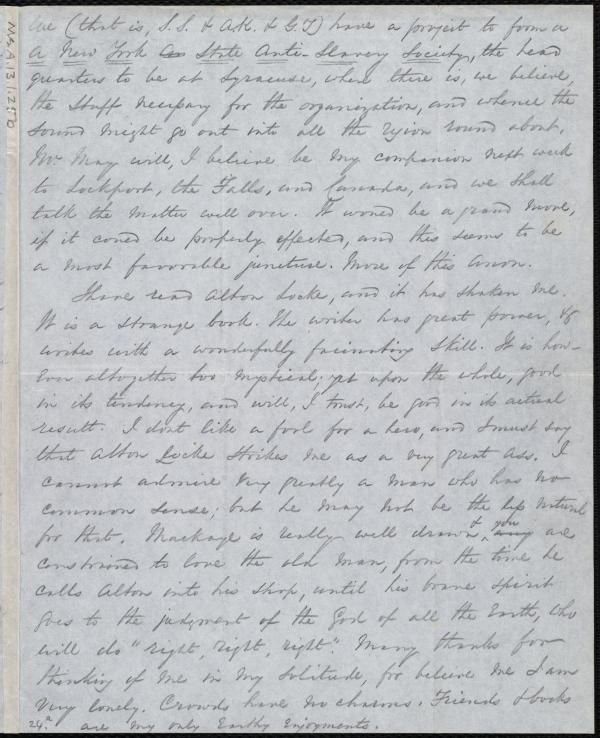 We (that is, S.S. & A.K. & G.T) have a project to form a
a New York State Anti-Slavery Society, the head
quarters to be at Syracuse, where there is, we believe,
the stuff necessary for the organization, and whence the
sound might go out into all the region round about.
Mr May will, I believe be my companion next week
to Lockport, the Falls, and Canada, and we shall
talk the matter well over. It would be a grand move,
if it could be properly effected, and this seems to be
a most favorable juncture. More of this anon.
I have read Alton Locke, and it has shaken me.
It is a strange book. The writer has great power, &
writes with a wonderfully fascinating skill. It is how-
ever altogether too mystical; yet upon the whole, good
in its tendency, and will, I trust, be good in its actual
result. I dont like a fool for a hero, and I must say
that Alton Locke strikes me as a very great ass. I
cannot admire very greatly a man who has no
common sense; but he may not be the less natural
for that. Mackaye is really well drawn, & you are
constrained to love the old man, from the time he
calls Alton into his shop, until his brave spirit
goes to the judgment of the God of all the Earth, who
will do "right, right, right". Many thanks for
thinking of me in my solitude, for believe me I am
very lonely. Crowds have no charms. Friends & books
are my only Earthy enjoyments.
24.
Ms.A.1.3